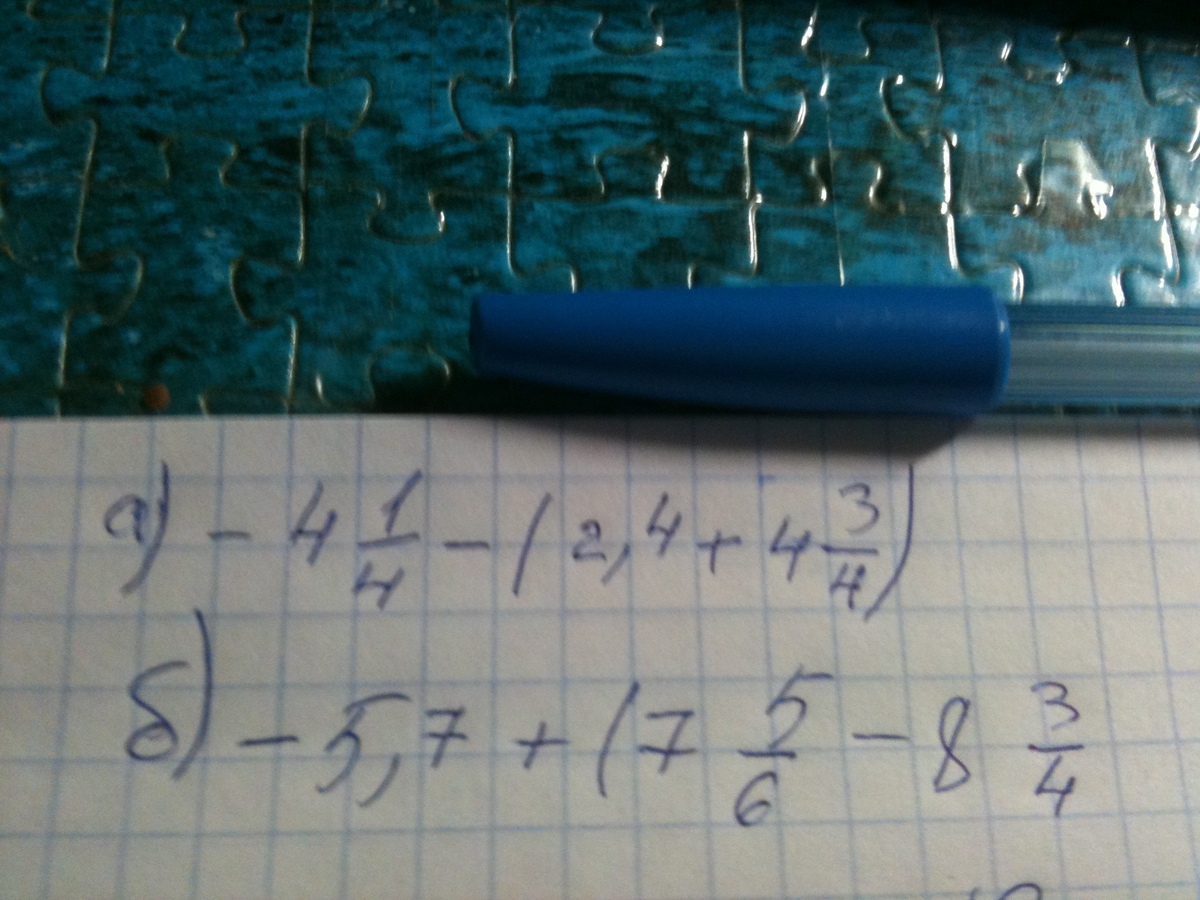 а) - 4 1/4 - (2,4 + 4 3/4)
б) - 5,7 + (7 5/6 - 8 3/4